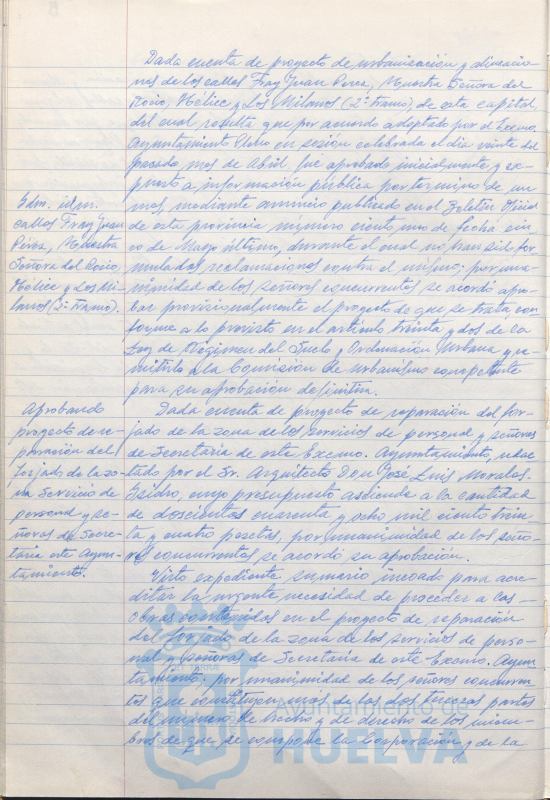 Dada cuenta de proyecto de urbanización y alineacio-
nes de las calles Fray Juan Perez, Nuestra Señora del
Rocio, Hélice y Los Milanos (2º tramo), de esta capital,
del cual resulta que por acuerdo adoptado por el Excmo.
Ayuntamiento Pleno en sesión celebrada el dia veinte del
pasado mes de Abril, fué aprobado inicialmente y ex-
puesto a información pública por termino de un
mes, mediante anuncio publicado en el Boletin Oficial
de esta provincia número ciento uno de fecha cin-
co de Mayo último, durante el cual no han sido for-
muladas reclamaciones contra el mismo; por una-
nimidad de los señores concurrentes se acordó apro-
bar provisionalmente el proyecto de que se trata, con-
forme a lo previsto en el articulo treinta y dos de la
Ley de Régimen del Suelo y Ordenación Urbana y re-
mitirlo a la Comisión de Urbanismo competente
para su aprobación definitiva.
Idm. idm.
calles Fray Juan
Perez, Nuestra
Señora del Rocio,
Hélice y Los Mi-
lanos (2º tramo).
Dada cuenta de proyecto de reparación del for-
jado de la zona de los servicios de personal y señoras
de Secretaria de este Excmo. Ayuntamiento, redac-
tado por el Sr. Arquitecto Don José Luis Morales
Isidro, cuyo presupuesto asciende a la cantidad
de doscientas cuarenta y ocho mil ciento trein-
ta y cuatro pesetas, por unanimidad de los seño-
res concurrentes se acordó su aprobación.
Aprobando
proyecto de re-
paración del
forjado de la zo-
na Servicio de
personal y se-
ñoras de Secre-
taria este Ayun-
tamiento.
Visto expediente sumario incoado para acre-
ditar la urgente necesidad de proceder a las
obras contenidas en el proyecto de reparación
del forjado de la zona de los servicios de perso-
nal y señoras de Secretaria de este Excmo. Ayun-
tamiento; por unanimidad de los señores concurren-
tes que constituyen más de las dos terceras partes
del número de hecho y de derecho de los miem-
bros de que se compone la Corporación y de la
Ayuntamiento de
HUELVA